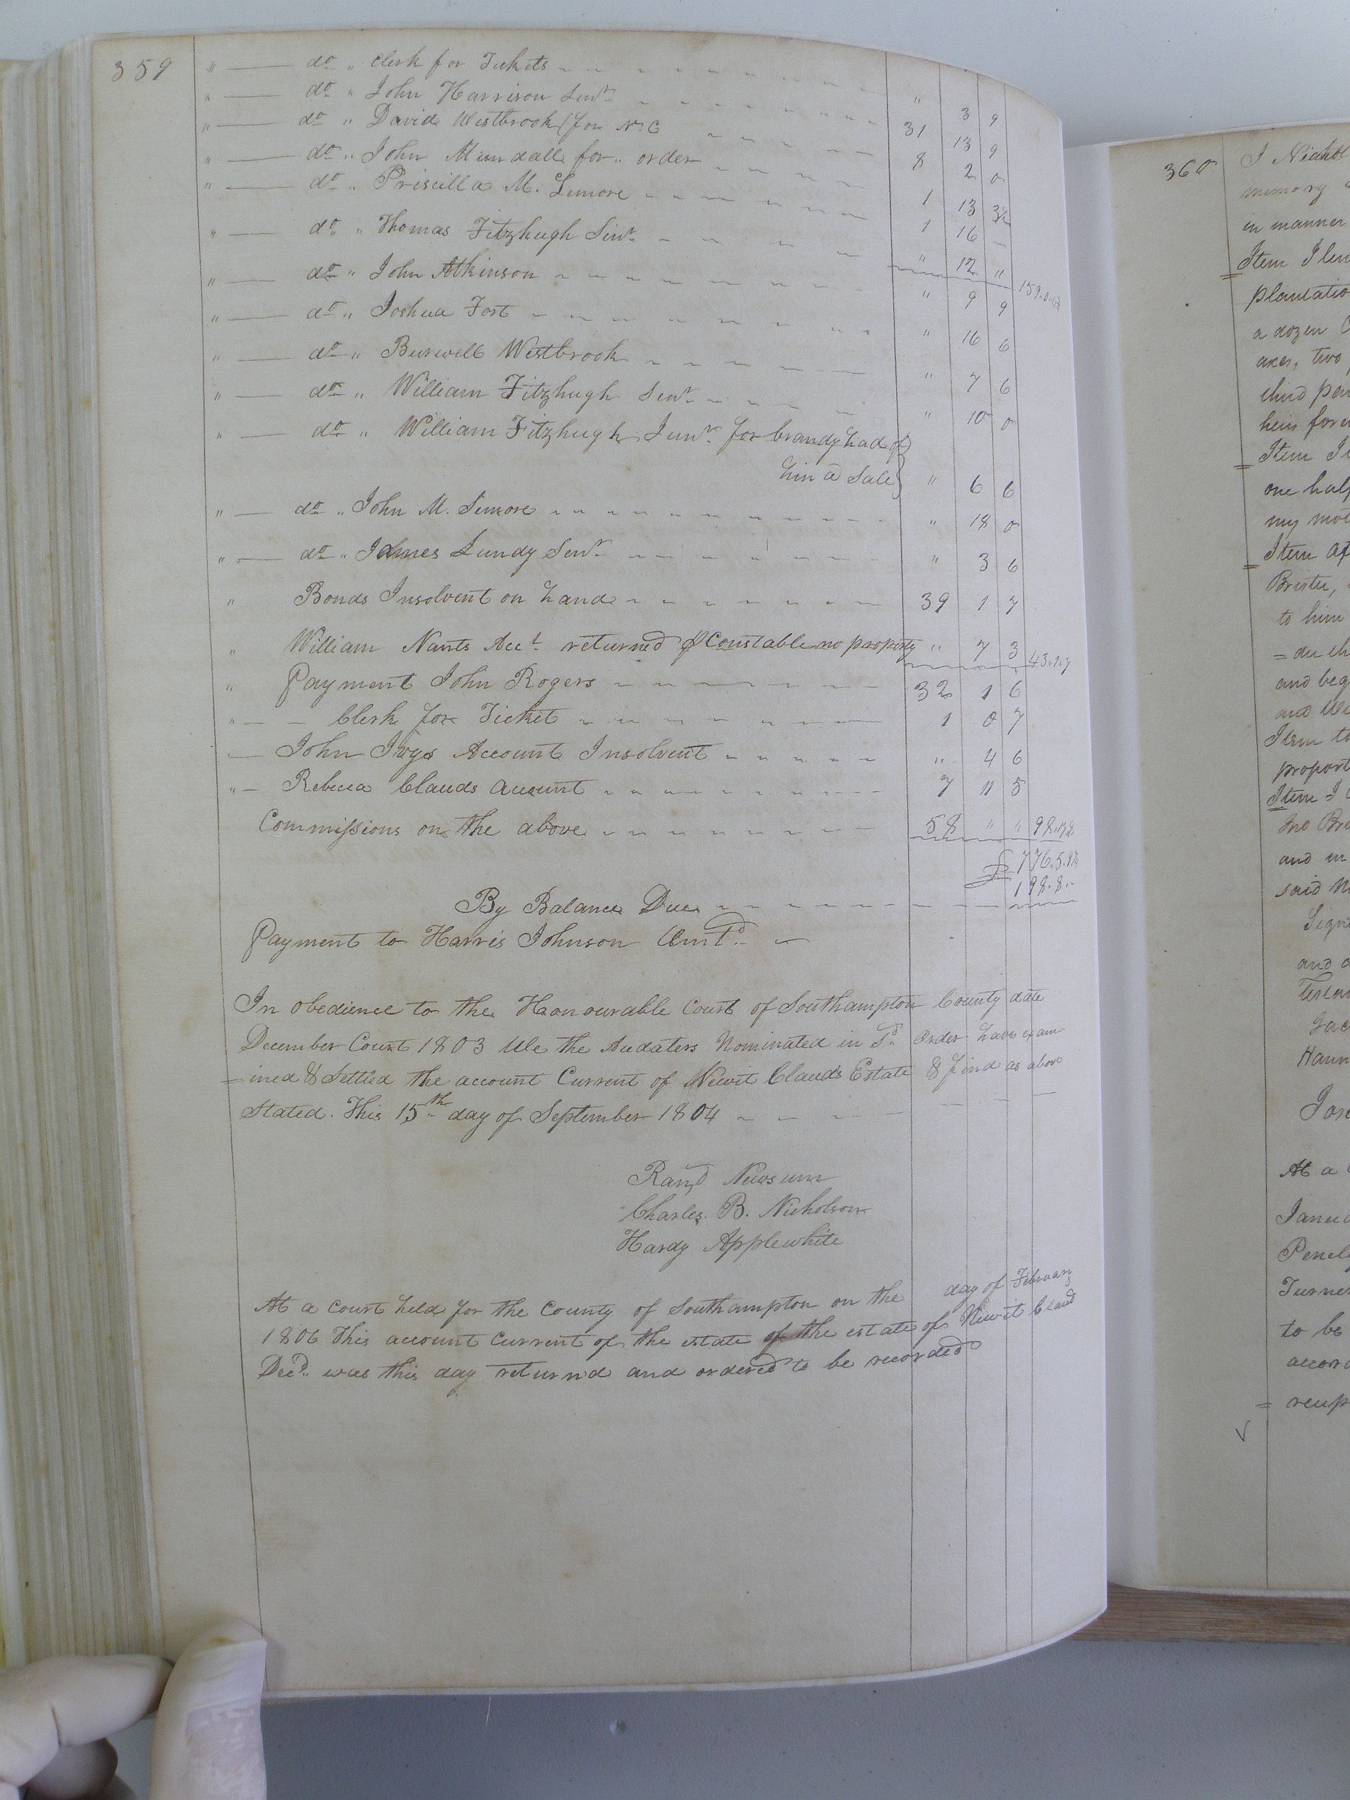 359
" do " Clerk for Tickets " 3 9
" do " John Harrison Senr 31 13 9
" do " David Westbrook (for N. C 8 2 0
" do " John Mundall for " order 1 13 3½
" do " Priscilla M. Lemore 1 16
" do " Thomas Fitzhugh Senr " 12 "
" do " John Atkinson " 9 9
" do " Joshua Fort " 16 6
" do " Burwell Westbrook " 7 6
" do " William Fitzhugh Senr " 10 0
" do " William Fitzhugh Junr for brandy had of
him @ Sale " 6 6
" do " John M. Simore " 18 0
" do " James Lundy Senr " 3 6
" Bonds Insolvent on hand 39 1 7
" William Nants Acct returned & Constable no property " 7 3
" Payment John Rogers 32 1 6
" Clerk for Ticket 1 0 7
John Ivys Account Insolvent " 4 6
" Rebecca Clauds account 7 11 5
Commissions on the above 58 " "
£ 776.5.1½
198.8.
By Balance Due
Payment to Harris Johnson
In obedience to the Honourable Court of Southampton County date
December Court 1803 We the Audaters Nominated in sd Order have exam
=ined & Settled the account Current of Newit Clauds Estate & find as above
Stated. This 15th day of September 1804
Rand Newsum
Charles. B. Nicholson
Hardy Applewhite
At a Court held for the County of Southampton on the day of February
1806 This account Current of the estate of the estate of Newit Claud
Decd. was this day returnd and ordered to be recorded
360
memory
in manner
Item I len
plantatio
a dozen
axes, two
third par
heirs forev
Item I
one half
my mot
Item
Brister,
to him
and beg
Item
proport
Item I
and in
said
Sign
and
Hann
At a
Janua
Penel
Turner
to be
accor